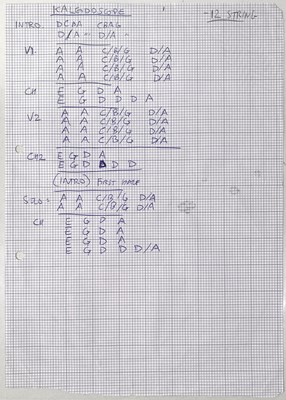 KALEIDOSCOPE -12 STRING
INTRO DCAA CBAG
D/A - D/A -
V1 A A C/B/G D/A
A A C/B/G D/A
A A C/B/G D/A
A A C/B/G D/A
CH E G D A
E G D D D A
V2 A A C/B/G D/A
A A C/B/G D/A
A A C/B/G D/A
A A C/B/G D/A
CH2 E G D A
E G D D D
(INTRO) FIRST HALF
SOLO = A A C/B/G D/A
A A C/B/G D/A
CH E G D A
E G D A
E G D A
E G D D D/A